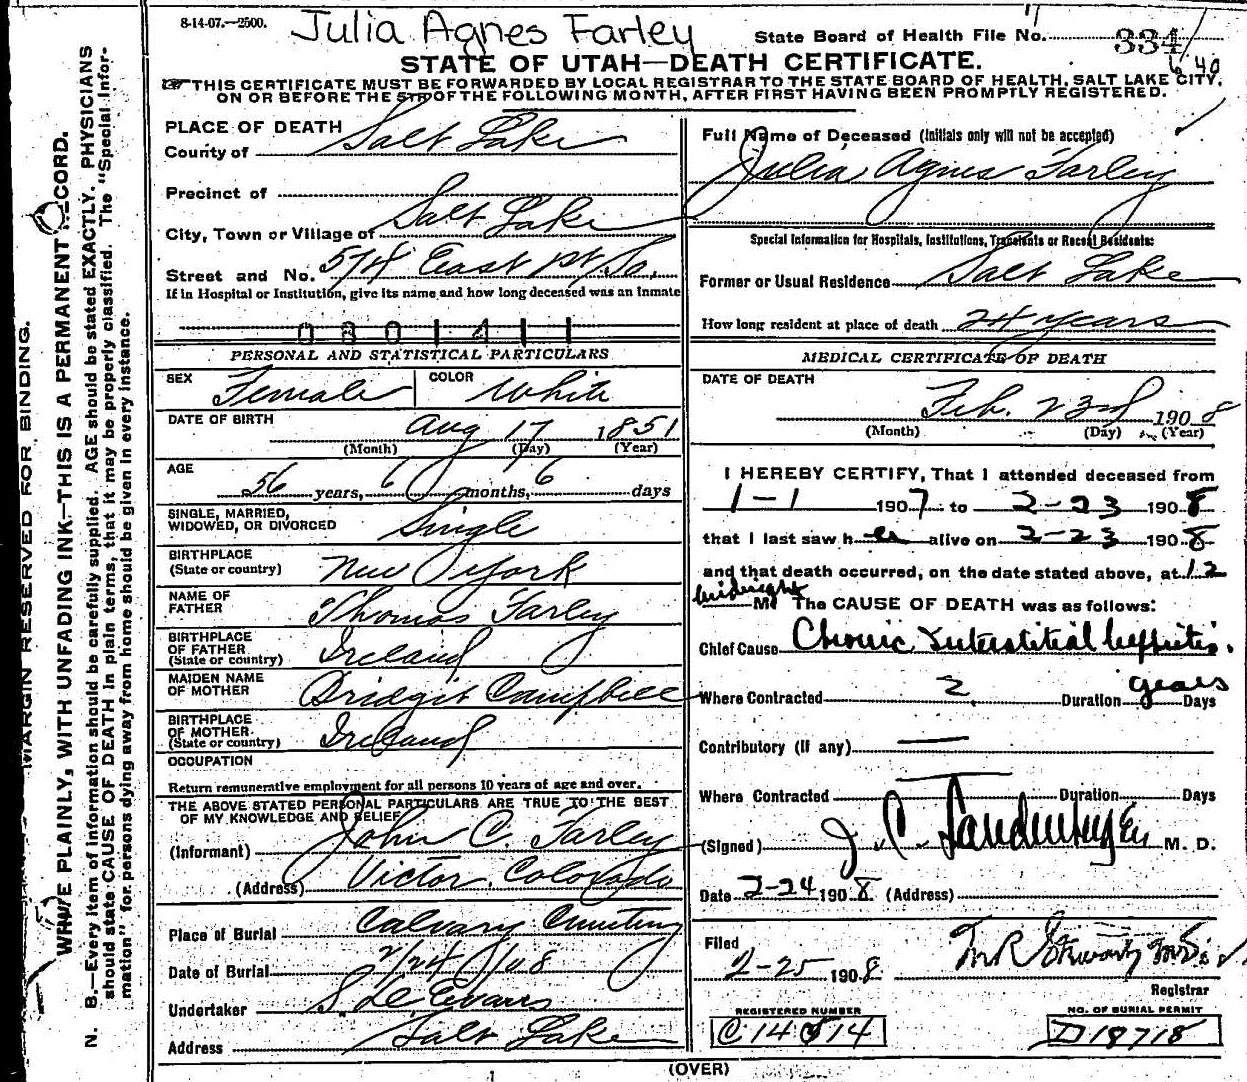 8-14-07.—2500.
Julia Agnes Farley
State Board of Health File No. 334
STATE OF UTAH—DEATH CERTIFICATE.
THIS CERTIFICATE MUST BE FORWARDED BY LOCAL REGISTRAR TO THE STATE BOARD OF HEALTH, SALT LAKE CITY,
ON OR BEFORE THE 5TH OF THE FOLLOWING MONTH, AFTER FIRST HAVING BEEN PROMPTLY REGISTERED.
MARGIN RESERVED FOR BINDING.
WRITE PLAINLY, WITH UNFADING INK—THIS IS A PERMANENT RECORD.
N. B.—Every item of information should be carefully supplied. AGE should be stated EXACTLY. PHYSICIANS
should state CAUSE OF DEATH in plain terms, that it may be properly classified. The "Special Infor-
mation" for persons dying away from home should be given in every instance.
PLACE OF DEATH
County of Salt Lake
Precinct of
City, Town or Village of Salt Lake
Street and No. 574 East 1st So.
If in Hospital or Institution, give its name and how long deceased was an Inmate
PERSONAL AND STATISTICAL PARTICULARS
SEX Female COLOR White
DATE OF BIRTH Aug 17 1851
(Month) (Day) (Year)
AGE 56 years, 6 months, 6 days
SINGLE, MARRIED,
WIDOWED, OR DIVORCED Single
BIRTHPLACE
(State or country) New York
NAME OF
FATHER Thomas Farley
BIRTHPLACE
OF FATHER
(State or country) Ireland
MAIDEN NAME
OF MOTHER Bridgit Campbell
BIRTHPLACE
OF MOTHER
(State or country) Ireland
OCCUPATION
Return remunerative employment for all persons 10 years of age and over.
THE ABOVE STATED PERSONAL PARTICULARS ARE TRUE TO THE BEST
OF MY KNOWLEDGE AND BELIEF
(Informant) John C. Farley
(Address) Victor, Colorado
Place of Burial Calvary Cemetery
Date of Burial 2/24/08
Undertaker S. D. Evans
Address Salt Lake
Full Name of Deceased (Initials only will not be accepted)
Julia Agnes Farley
Special Information for Hospitals, Institutions, Transients or Recent Residents:
Former or Usual Residence Salt Lake
How long resident at place of death 24 years
MEDICAL CERTIFICATE OF DEATH
DATE OF DEATH
Feb. 23rd 1908
(Month) (Day) (Year)
I HEREBY CERTIFY, That I attended deceased from
1-1 1907 to 2-23 1908
that I last saw her alive on 2-23 1908
and that death occurred, on the date stated above, at 12
midnight M. The CAUSE OF DEATH was as follows:
Chief Cause Chronic Interstitial Nephritis.
Where Contracted 2 Duration years Days
Contributory (If any) —
Where Contracted Duration Days
(Signed) J. C. M. D.
Date 2-24 1908 (Address)
Filed
2-25 1908
Registrar
REGISTERED NUMBER
C 14514
NO. OF BURIAL PERMIT
D 18718
(OVER)